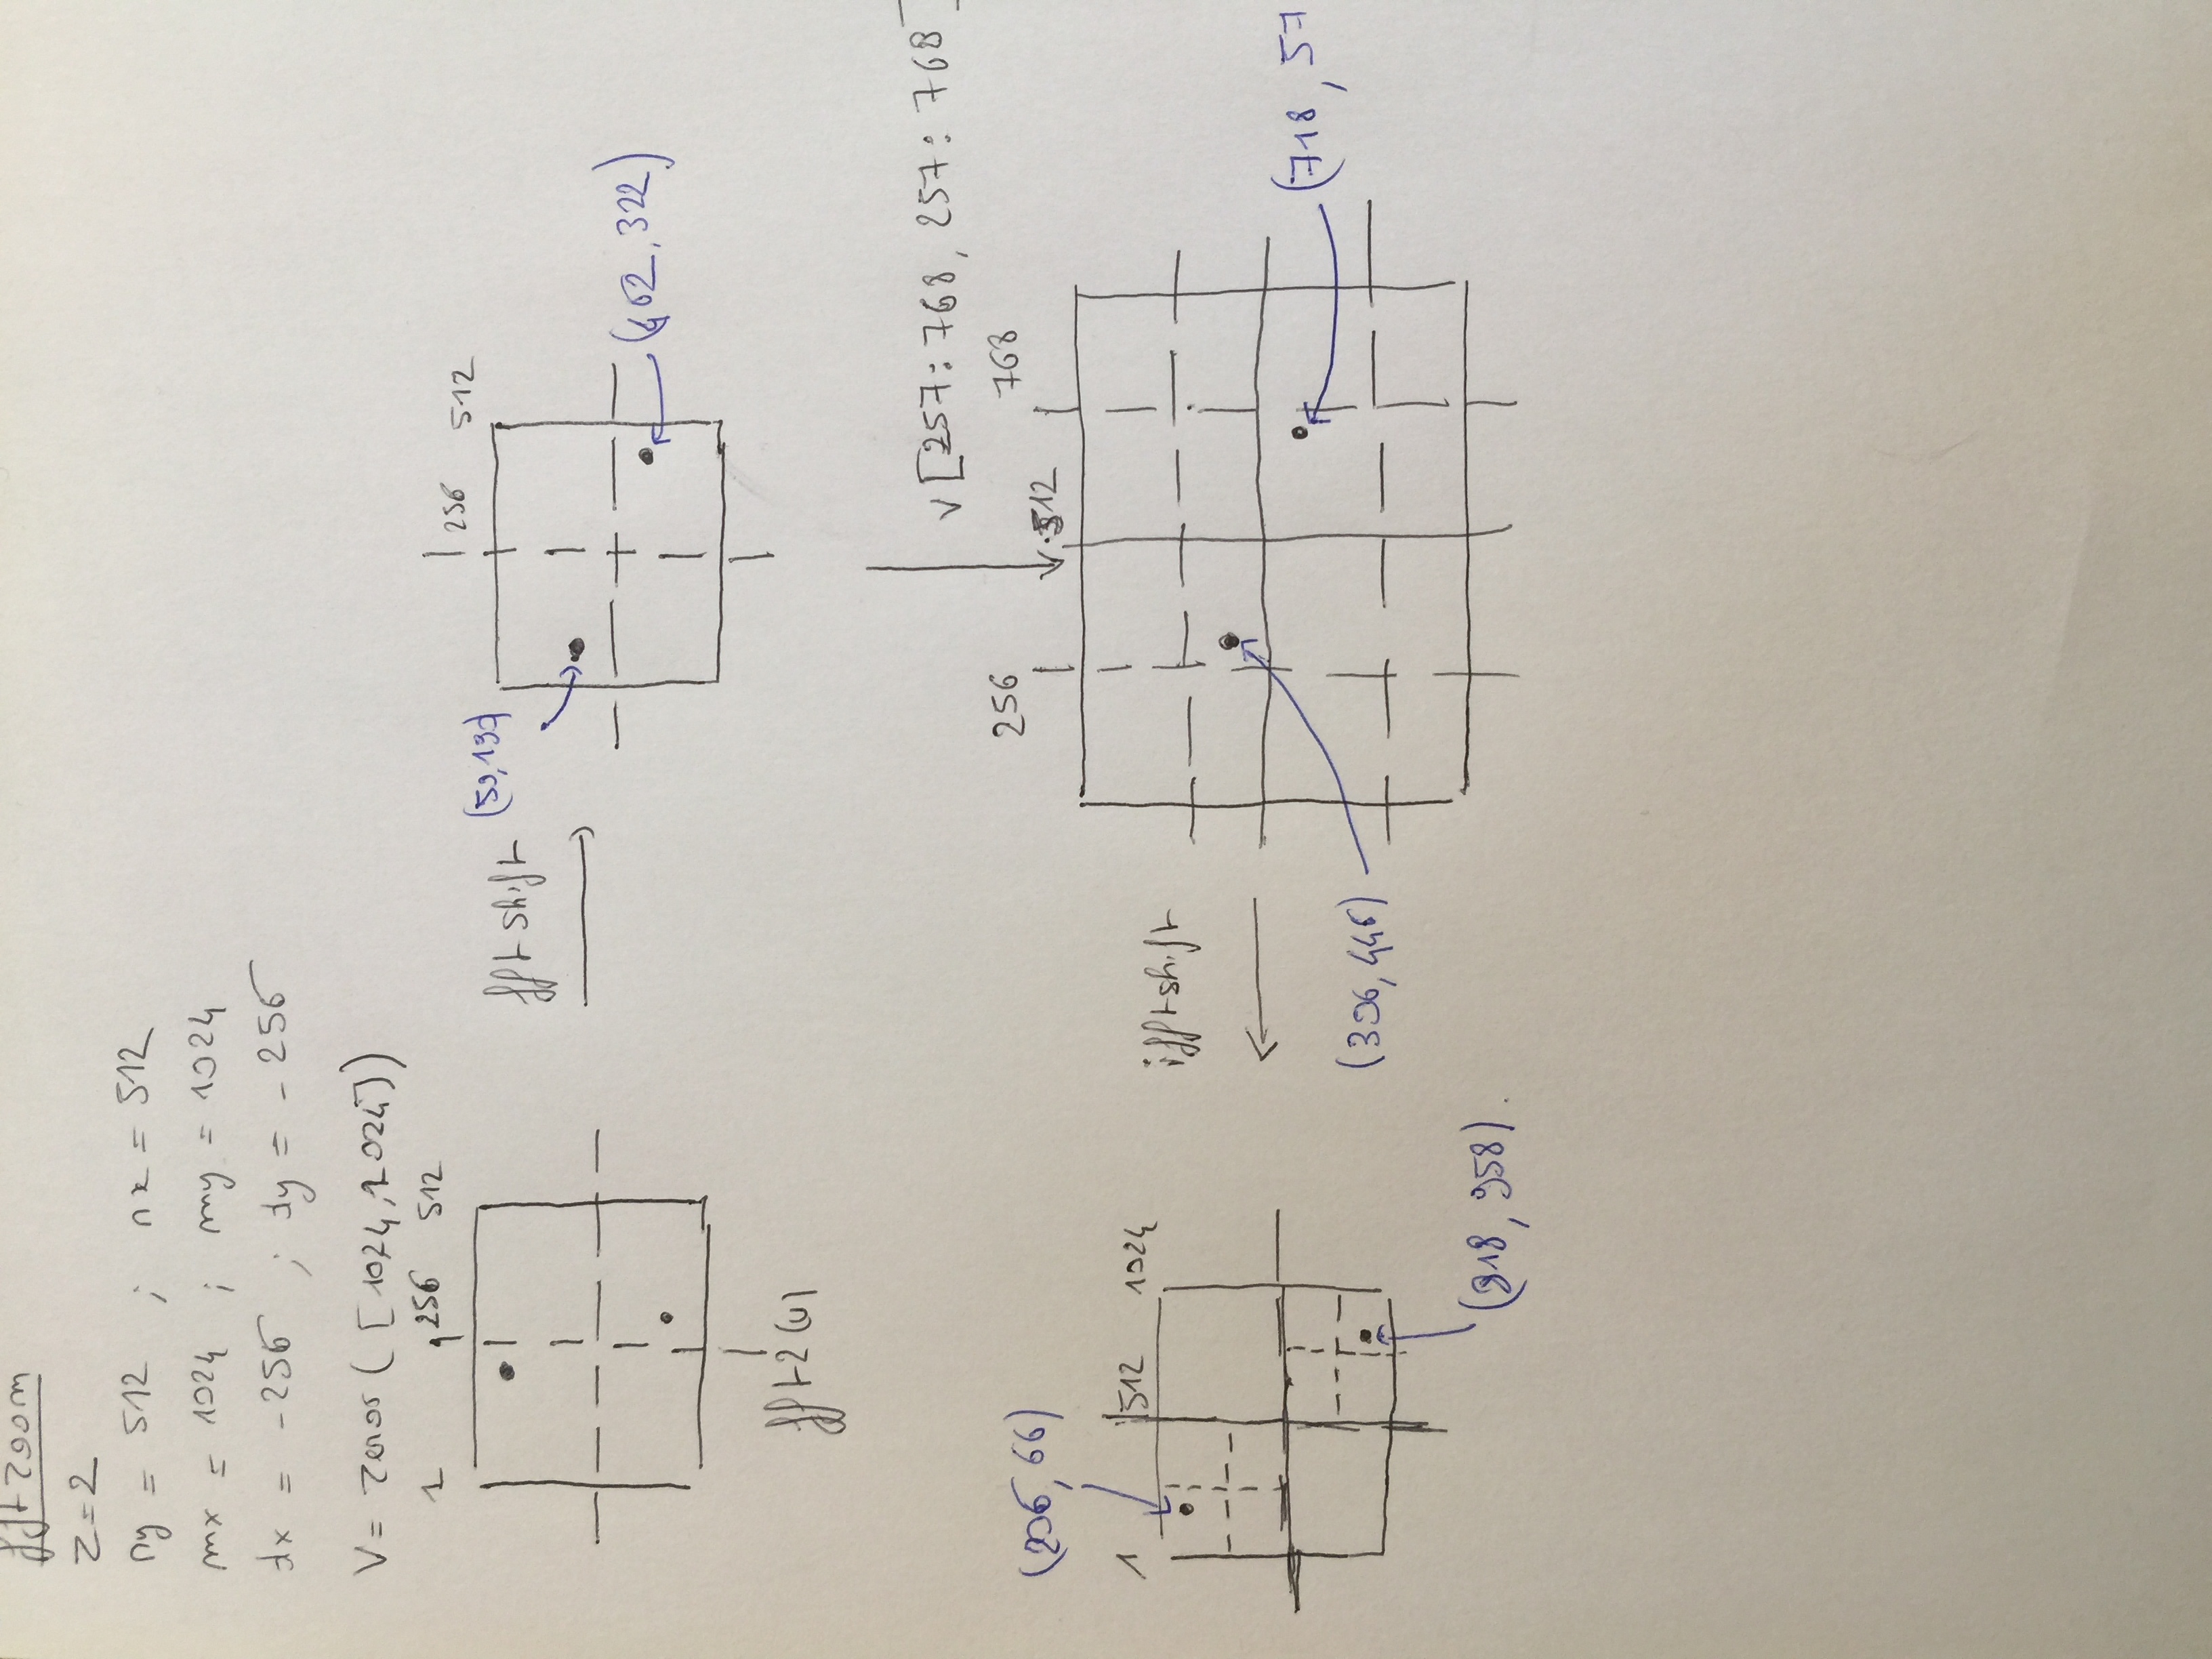 fftzoom
z=2
ny = 512 ; nx = 512
mx = 1024 ; my = 1024
dx = -256 ; dy = -256
V = zeros([1024,1024])
1 256 512
fftshift
(50,190)
256 512
(462,322)
fft2(u)
v[257:768, 257:768]
256 768
512
(206,66)
1 512 1024
ifftshift
(306,446)
(718, 57
(818, 958).